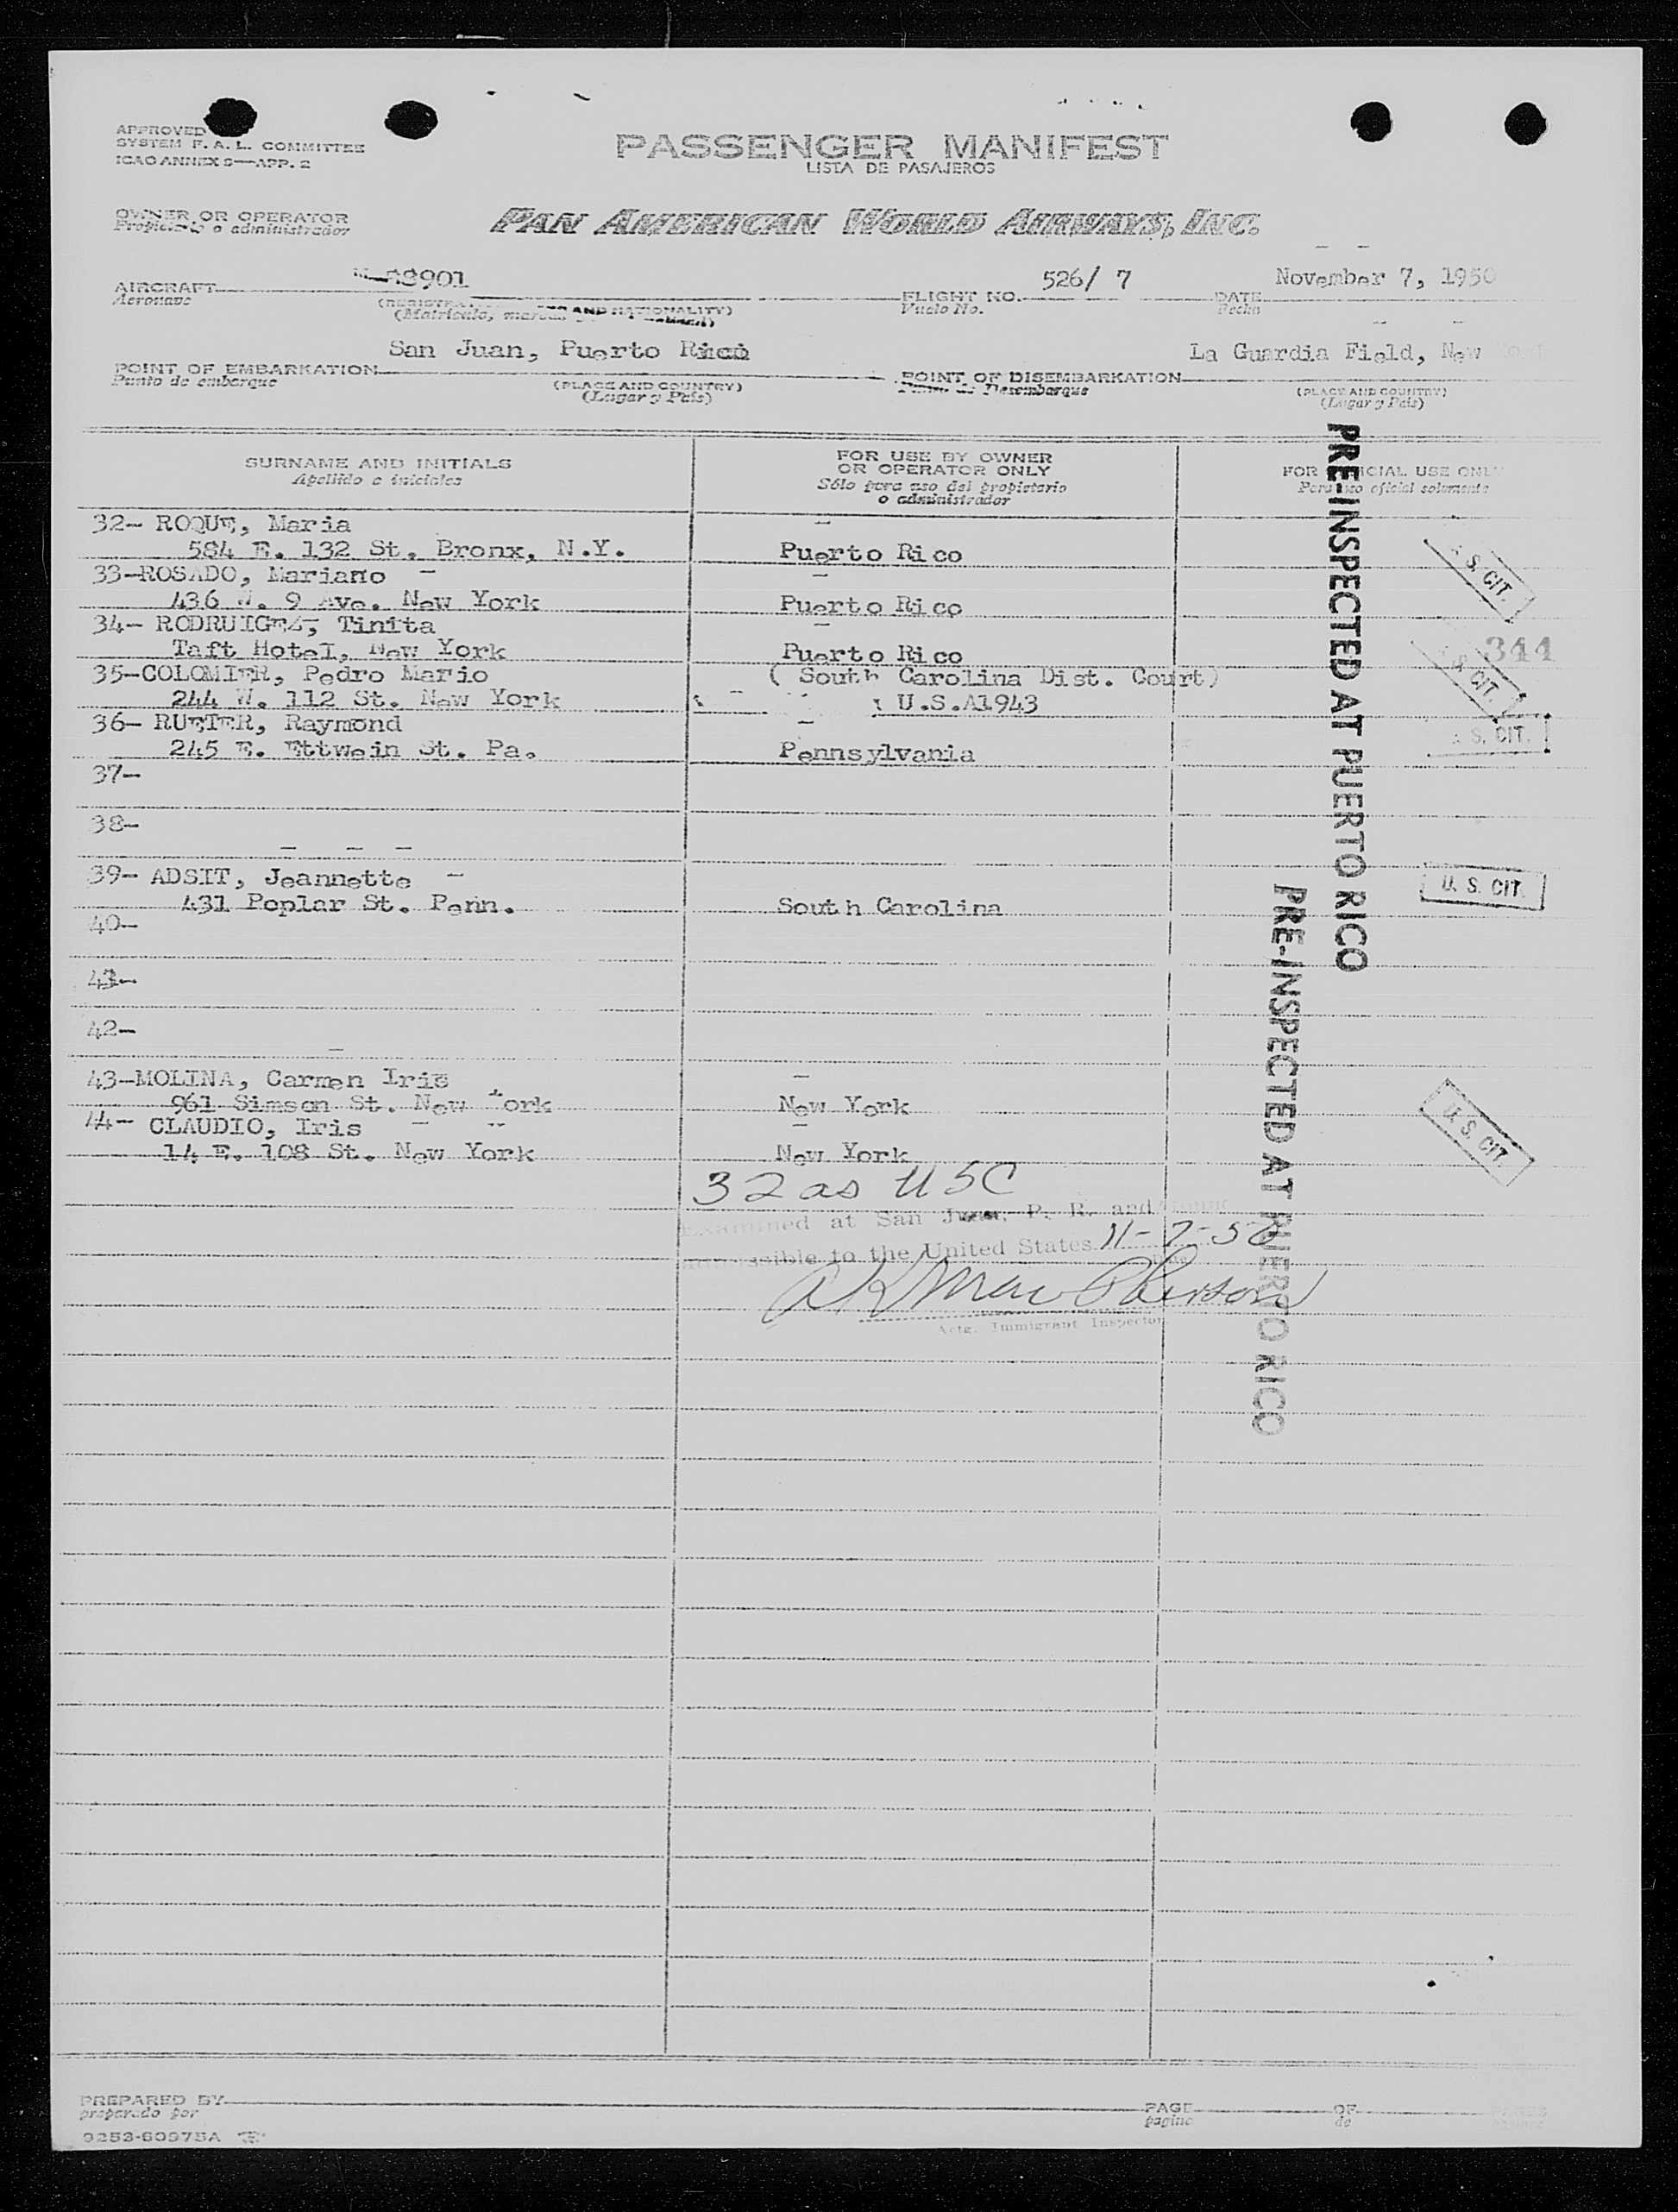 APPROVED
SYSTEM F. A. L. COMMITTEE
ICAO ANNEX 9—APP. 2
PASSENGER MANIFEST
LISTA DE PASAJEROS
OWNER OR OPERATOR
Propietario o administrador
PAN AMERICAN WORLD AIRWAYS, INC.
AIRCRAFT 88901
Aeronave
AND NATIONALITY)
(Matrícula,
FLIGHT NO. 526/ 7
Vuelo No.
DATE November 7, 1950
Fecha
POINT OF EMBARKATION San Juan, Puerto Rico
Punto de embarque
(PLACE AND COUNTRY)
(Lugar y País)
POINT OF DISEMBARKATION La Guardia Field, New
Desembarque
(PLACE AND COUNTRY)
(Lugar y País)
SURNAME AND INITIALS
Apellido e iniciales
FOR USE BY OWNER
OR OPERATOR ONLY
Sólo para uso del propietario
o administrador
FOR OFFICIAL USE ONLY
Para uso oficial solamente
32- ROQUE, Maria
584 E. 132 St. Bronx, N.Y. Puerto Rico
33-ROSADO, Mariano
436 W. 9 Ave. New York Puerto Rico
34- RODRUIGEZ, Tinita
Taft Hotel, New York Puerto Rico
35-COLOMIER, Pedro Mario ( South Carolina Dist. Court)
244 W. 112 St. New York U.S.A1943
36- RUETER, Raymond
245 E. Ettwein St. Pa. Pennsylvania
37-
38-
39- ADSIT, Jeannette
431 Poplar St. Penn. South Carolina
40-
41-
42-
43-MOLINA, Carmen Iris
961 Simson St. New York New York
44- CLAUDIO, Iris
14 E. 108 St. New York New York
32 as USC
Examined at San Juan, P. R. and
to the United States 11-7-50
Actg. Immigrant Inspector
PRE-INSPECTED AT PUERTO RICO
PRE-INSPECTED AT PUERTO RICO
S. CIT.
344
CIT.
S. CIT.
U. S. CIT.
U. S. CIT.
PREPARED BY
preparado por
PAGE
página
OF
de
PAGES
9253-60975A